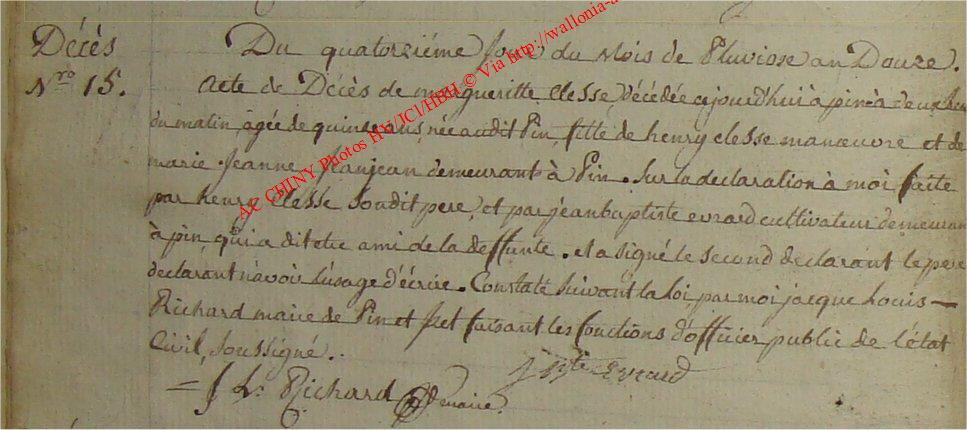 Décès
Nro 15.
Du quatorziéme Jour du Mois de Pluviose an Douze.
Acte de Décès de margueritte Clesse Décédée ajourd'hui à pin à deux heu
du matin, agée de quinze ans, née audit Pin, fille de henry clesse manœuvre et de
marie Jeanne Jeanjean demeurant à Pin. Sur la declaration à moi faite
par henry Clesse Soudit pere, et par jean baptiste evrard cultivateur demeurant
à pin, qui a dit etre ami de la deffunte. et a signé le second declarant le pere
declarant n'avoir l'usage d'écrire. Constaté Suivant la loi, par moi jacque Louis
Richard maire de Pin et faisant les fonctions d'officier public de l'état
Civil, Soussigné.
J Bte Evrard
J L. Richard maire.
AC CHINY Photos HV/JCl/HBH © Via http://wallonia-a